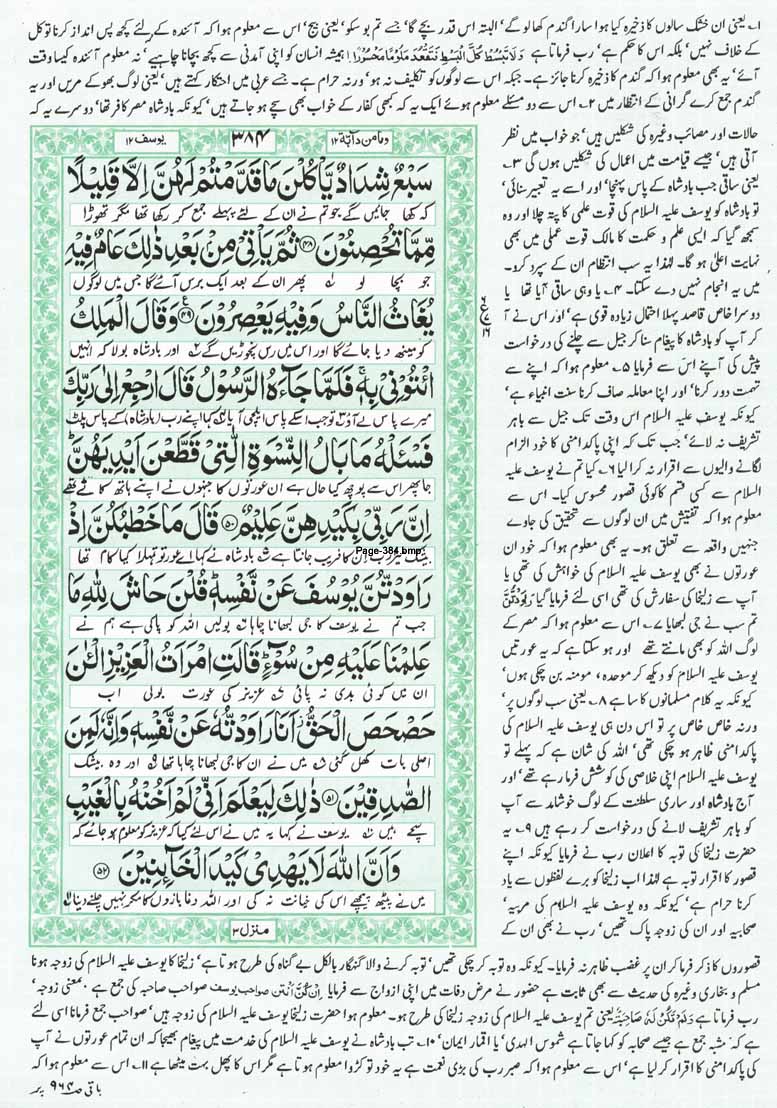 ۱۔ یعنی ان خشک سالوں کا ذخیرہ کیا ہوا سارا گندم کھا لو گے' البتہ اس قدر بچے گا' جسے تم بو سکو' یعنی بیج' اس سے معلوم ہوا کہ آئندہ کے لئے کچھ پس انداز کرنا توکل
کے خلاف نہیں' بلکہ اس کا حکم ہے' رب فرماتا ہے وَلَا تَبْسُطْهَا كُلَّ الْبَسْطِ فَتَقْعُدَ مَلُوْمًا مَّحْسُوْرًا ہمیشہ انسان کو اپنی آمدنی سے کچھ بچانا چاہیے' نہ معلوم آئندہ کیسا وقت
آئے' یہ بھی معلوم ہوا کہ گندم کا ذخیرہ کرنا جائز ہے۔ جبکہ اس سے لوگوں کو تکلیف نہ ہو' ورنہ حرام ہے۔ جسے عربی میں احتکار کہتے ہیں' یعنی لوگ بھوکے مریں اور یہ
گندم جمع کرے گرانی کے انتظار میں ۲۔ اس سے دو مسئلے معلوم ہوئے ایک یہ کہ کبھی کفار کے خواب بھی سچے ہو جاتے ہیں' کیونکہ بادشاہ مصر کافر تھا' دوسرے یہ کہ
حالات اور مصائب وغیرہ کی شکلیں ہیں' جو خواب میں نظر
آتی ہیں' جیسے قیامت میں اعمال کی شکلیں ہوں گی ۳۔
یعنی ساقی جب بادشاہ کے پاس پہنچا' اور اسے یہ تعبیر سنائی'
تو بادشاہ کو یوسف علیہ السلام کی قوت علمی کا پتہ چلا اور وہ
سمجھ گیا کہ ایسی علم و حکمت کا مالک قوت عملی میں بھی
نہایت اعلیٰ ہو گا۔ لہٰذا یہ سب انتظام ان کے سپرد کرو۔
میں یہ انجام نہیں دے سکتا۔ ۴۔ یا وہی ساقی آیا تھا یا
دوسرا خاص قاصد پہلا احتمال زیادہ قوی ہے' اور اس نے آ
کر آپ کو بادشاہ کا پیغام سنا کر جیل سے چلنے کی درخواست
پیش کی آپنے اس سے فرمایا ۵۔ معلوم ہوا کہ اپنے سے
تہمت دور کرنا' اور اپنا معاملہ صاف کرنا سنت انبیاء ہے'
کیونکہ یوسف علیہ السلام اس وقت تک جیل سے باہر
تشریف نہ لائے' جب تک کہ اپنی پاکدامنی کا خود الزام
لگانے والیوں سے اقرار نہ کرا لیا ۶۔ کیا تم نے یوسف علیہ
السلام سے کسی قسم کا کوئی قصور محسوس کیا۔ اس سے
معلوم ہوا کہ تفتیش میں ان لوگوں سے تحقیق کی جاوے
جنہیں واقعہ سے تعلق ہو۔ یہ بھی معلوم ہوا کہ خود ان
عورتوں نے بھی یوسف علیہ السلام کی خواہش کی تھی یا
آپ سے زلیخا کی سفارش کی تھی اسی لئے فرمایا گیا رَاوَدْتُّنَّ
تم سب نے جی لبھایا ۷۔ اس سے معلوم ہوا کہ مصر کے
لوگ اللہ کو بھی مانتے تھے اور ہو سکتا ہے کہ یہ عورتیں
یوسف علیہ السلام کو دیکھ کر موحدہ، مومنہ بن چکی ہوں'
کیونکہ یہ کلام مسلمانوں کا سا ہے ۸۔ یعنی سب لوگوں پر'
ورنہ خاص خاص پر تو اس دن ہی یوسف علیہ السلام کی
پاکدامنی ظاہر ہو چکی تھی' اللہ کی شان ہے کہ پہلے تو
یوسف علیہ السلام اپنی خلاصی کی کوشش فرما رہے تھے' اور
آج بادشاہ اور ساری سلطنت کے لوگ خوشامد سے آپ
کو باہر تشریف لانے کی درخواست کر رہے ہیں ۹۔ یہ
حضرت زلیخا کی توبہ کا اعلان رب نے فرمایا کیونکہ اپنے
قصور کا اقرار توبہ ہے لہٰذا اب زلیخا کو برے لفظوں سے یاد
کرنا حرام ہے' کیونکہ وہ یوسف علیہ السلام کی مربیہ'
صحابیہ اور ان کی زوجہ پاک تھیں' رب نے بھی ان کے
ومامن دآبۃ۱۲
۳۸۴
یوسف ۱۲
سَبْعٌ شِدَادٌ یَّاْكُلْنَ مَا قَدَّمْتُمْ لَهُنَّ اِلَّا قَلِیْلًا
کہ کھا جائیں گے جو تم نے ان کے لئے پہلے جمع کر رکھا تھا مگر تھوڑا
مِّمَّا تُحْصِنُوْنَ ﴿۴۸﴾ ثُمَّ یَاْتِیْ مِنْۢ بَعْدِ ذٰلِكَ عَامٌ فِیْهِ
جو بچا لو ۱ پھر ان کے بعد ایک برس آئے گا جس میں لوگوں
یُغَاثُ النَّاسُ وَفِیْهِ یَعْصِرُوْنَ ﴿۴۹﴾ وَقَالَ الْمَلِكُ
کو مینھ دیا جائے گا اور اس میں رس نچوڑیں گے ۲ اور بادشاہ بولا کہ انہیں
ائْتُوْنِیْ بِهٖ ۚ فَلَمَّا جَآءَهُ الرَّسُوْلُ قَالَ ارْجِعْ اِلٰی رَبِّكَ
میرے پاس لے آؤ ۳ تو جب اسکے پاس ایلچی آیا ۴ کہا اپنے رب (بادشاہ) کے پاس پلٹ
فَسْـَٔلْهُ مَا بَالُ النِّسْوَةِ الّٰتِیْ قَطَّعْنَ اَیْدِیَهُنَّ ؕ
جا پھر اس سے پوچھ کیا حال ہے ان عورتوں کا جنہوں نے اپنے ہاتھ کاٹے تھے
اِنَّ رَبِّیْ بِكَیْدِهِنَّ عَلِیْمٌ ﴿۵۰﴾ قَالَ مَا خَطْبُكُنَّ اِذْ
بیشک میرا رب ان کا فریب جانتا ہے ۵ بادشاہ نے کہا اے عورتو تمہارا کیا کام تھا
Page-384.bmp
رَاوَدْتُّنَّ یُوْسُفَ عَنْ نَّفْسِهٖ ؕ قُلْنَ حَاشَ لِلّٰهِ مَا
جب تم نے یوسف کا جی لبھانا چاہا ۶ بولیں اللہ کو پاکی ہے ہم نے
عَلِمْنَا عَلَیْهِ مِنْ سُوْٓءٍ ؕ قَالَتِ امْرَاَتُ الْعَزِیْزِ الْـٰٔنَ
ان میں کوئی بدی نہ پائی ۷ عزیز کی عورت بولی اب
حَصْحَصَ الْحَقُّ ؗ اَنَا رَاوَدْتُّهٗ عَنْ نَّفْسِهٖ وَاِنَّهٗ لَمِنَ
اصلی بات کھل گئی ۸ میں نے ان کا جی لبھانا چاہا تھا ۹ اور وہ بیشک
الصّٰدِقِیْنَ ﴿۵۱﴾ ذٰلِكَ لِیَعْلَمَ اَنِّیْ لَمْ اَخُنْهُ بِالْغَیْبِ
سچے ہیں ۱۰ یوسف نے کہا یہ میں نے اس لئے کیا کہ عزیز کو معلوم ہو جائے کہ
وَاَنَّ اللّٰهَ لَا یَهْدِیْ كَیْدَ الْخَآئِنِیْنَ ﴿۵۲﴾
میں نے پیٹھ پیچھے اس کی خیانت نہ کی اور اللہ دغا بازوں کا مکر نہیں چلنے دیتا ۱۱
منزل ۳
ع ۶ ۱۶
قصوروں کا ذکر فرما کر ان پر غضب ظاہر نہ فرمایا۔ کیونکہ وہ توبہ کر چکی تھیں' توبہ کرنے والا گنہگار بالکل بے گناہ کی طرح ہوتا ہے' زلیخا کا یوسف علیہ السلام کی زوجہ ہونا
مسلم و بخاری وغیرہ کی حدیث سے بھی ثابت ہے حضور نے مرض وفات میں اپنی ازواج سے فرمایا اِنَّكُنَّ اَنْتُنَّ صواحب یوسف صواحب صاحبہ کی جمع ہے۔ بمعنی زوجہ'
رب فرماتا ہے وَلَمْ تَكُنْ لَّهٗ صَاحِبَةٌ یعنی تم یوسف علیہ السلام کی زوجہ زلیخا کی طرح ہو۔ معلوم ہوا حضرت زلیخا یوسف علیہ السلام کی زوجہ ہیں' صواحب جمع فرمانا اسی لئے
ہے کہ مشبہ جمع ہے جیسے صحابہ کو کہا جاتا ہے شموس الہدی' یا اقمار ایمان' ۱۰۔ تب بادشاہ نے یوسف علیہ السلام کی خدمت میں پیغام بھیجا کہ ان تمام عورتوں نے آپ
کی پاکدامنی کا اقرار کر لیا ہے' اس سے معلوم ہوا کہ صبر رب کی بڑی نعمت ہے یہ خود تو کڑوا معلوم ہوتا ہے مگر اس کا پھل بہت میٹھا ہے ۱۱۔ اس سے معلوم ہوا کہ
باقی صـ ۹۶۴ پر